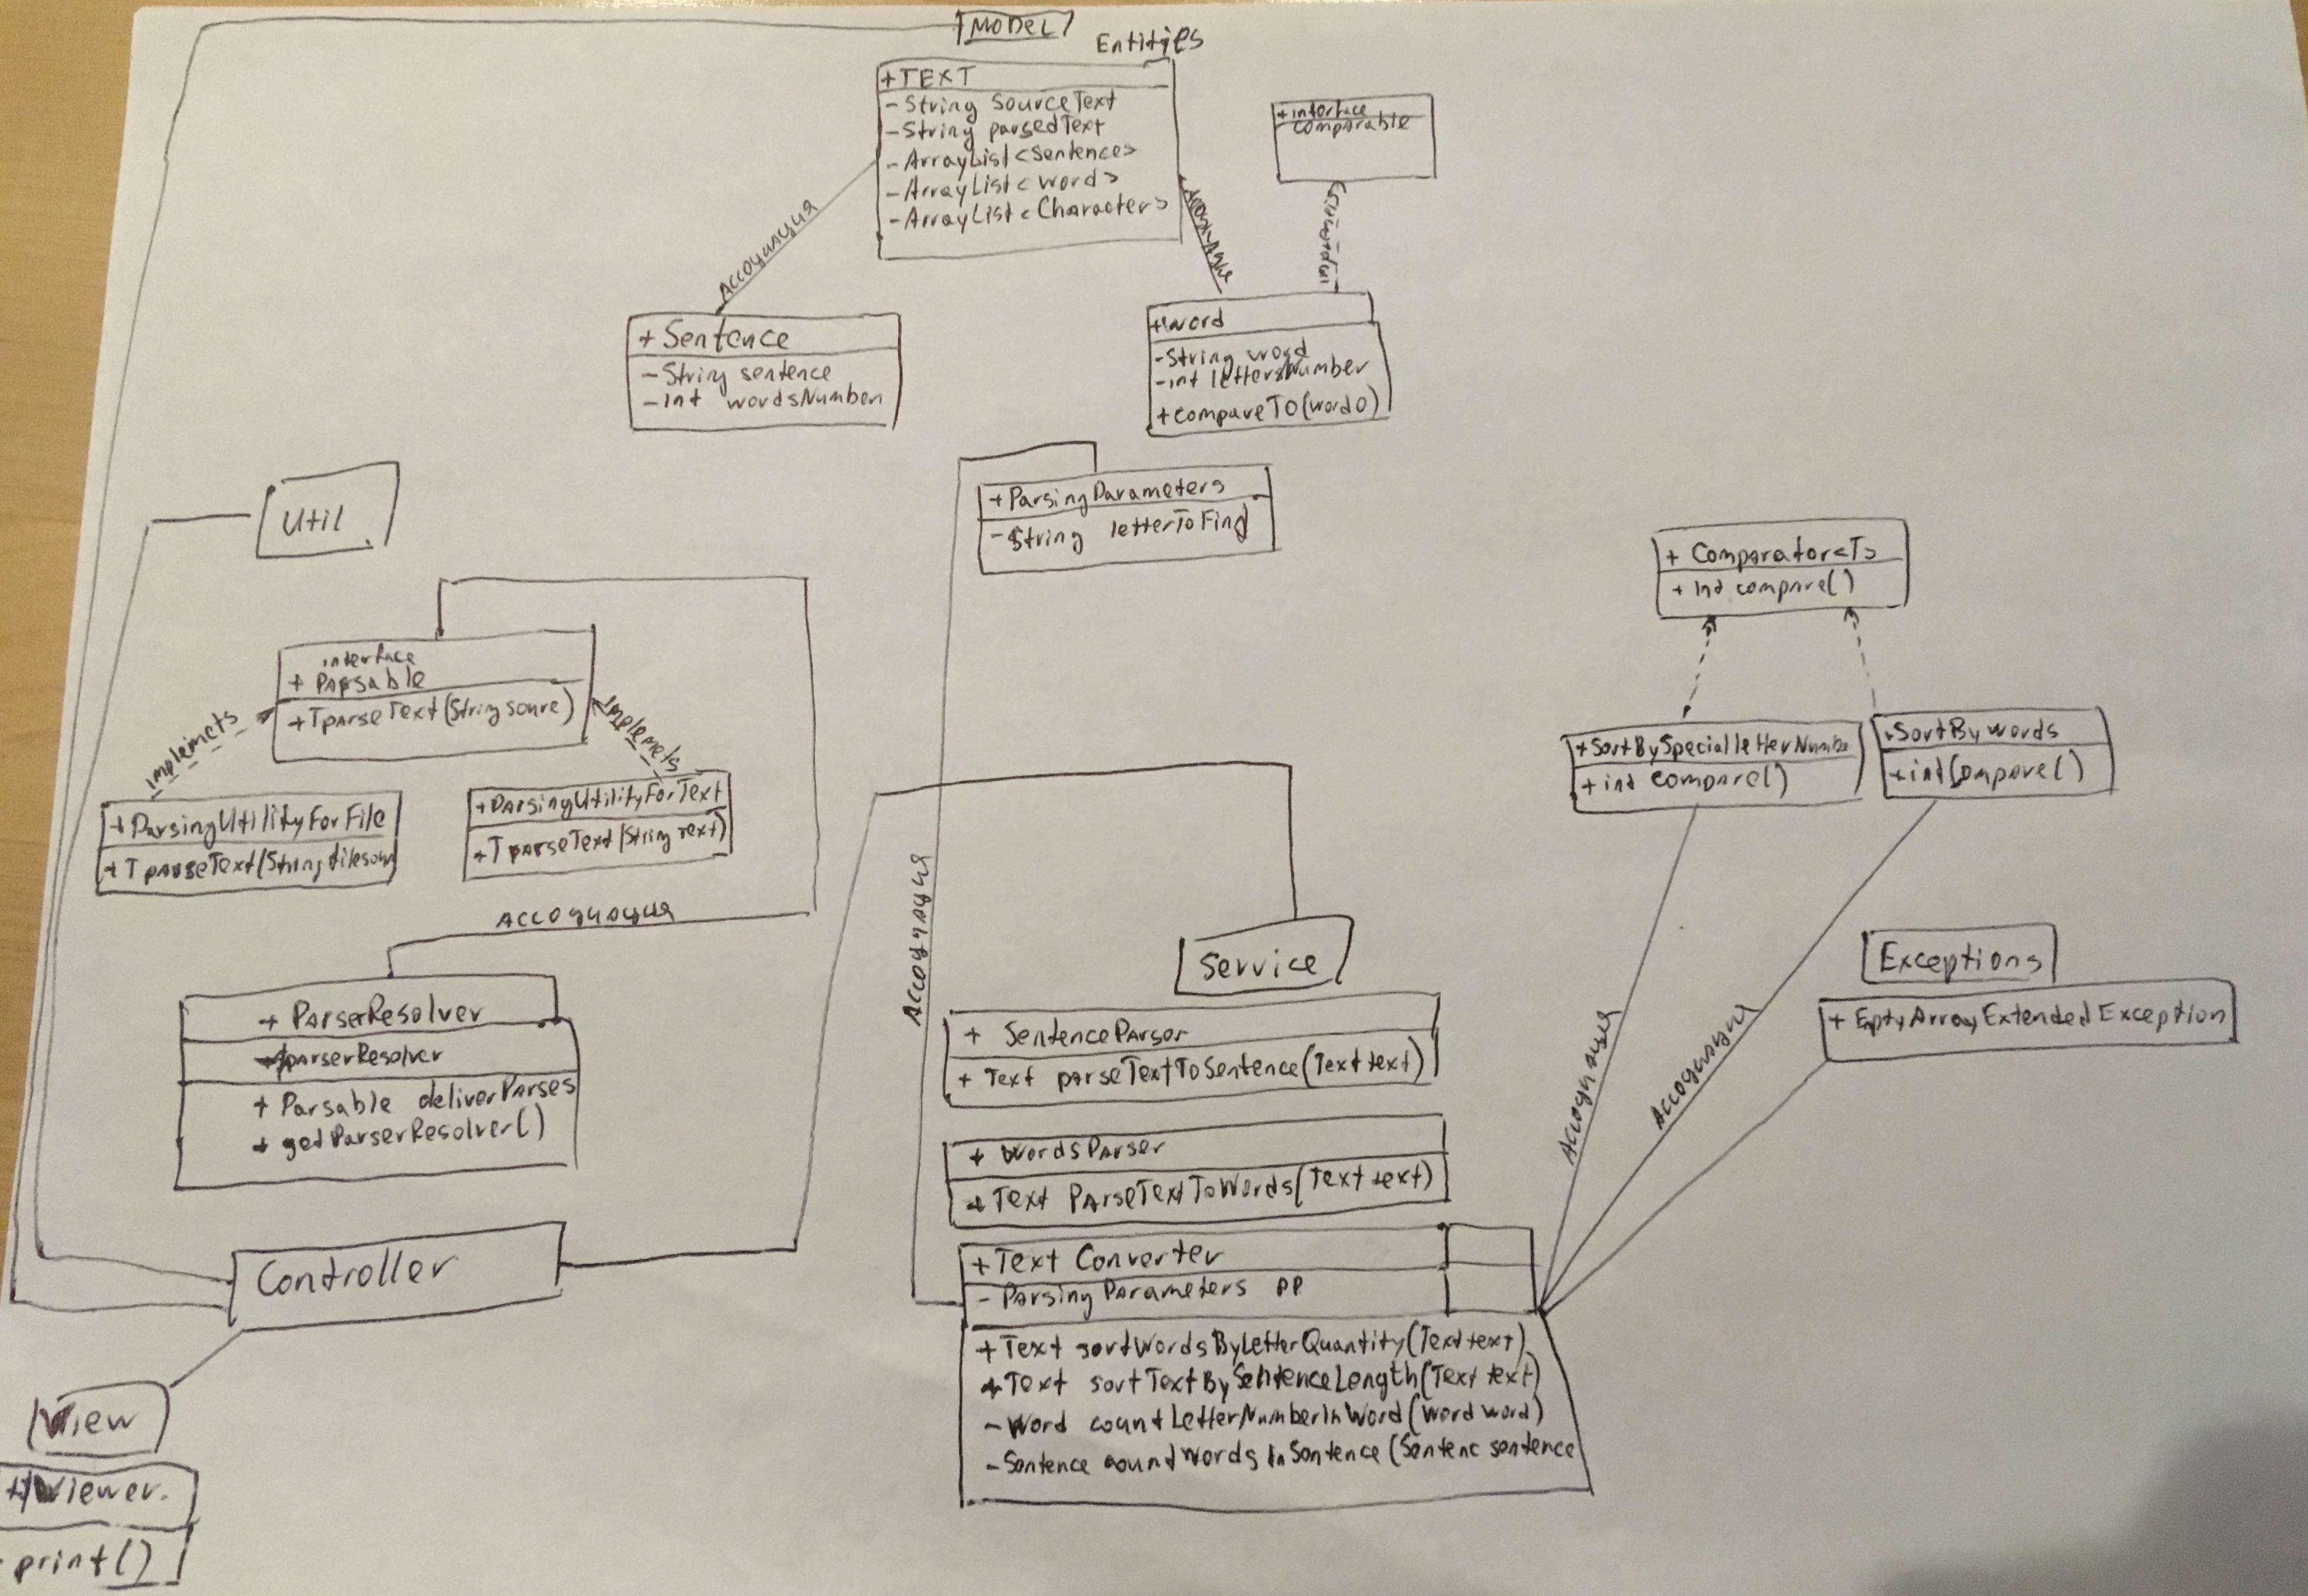 MODEL
Entities
+TEXT
-String sourceText
-String parsedText
-ArrayList<Sentence>
-ArrayList<Word>
-ArrayList<Character>
+interface
comparable
Ассоциация
Ассоциация
+ Sentence
-String sentence
-int wordsNumber
+Word
-String word
-int lettersNumber
+compareTo(word o)
Util
+ParsingParameters
-String letterToFind
+ Comparator<T>
+ int compare()
interface
+ Parsable
+TparseText(String soure)
implemets
implemets
+SortBySpecialletterNumbe
+ int compare()
+SortBywords
+int Compare()
+ParsingUtilityForFile
+T parseText(String filesour
+ParsingUtilityForText
+T parseText(String text)
Ассоциация
Ассоциация
Service
Exceptions
+ EptyArrayExtendedException
+ ParserResolver
parserResolver
+ Parsable deliverParses
+ getParserResolver()
+ SentenceParser
+ Text parseTextToSentence(Text text)
Ассоциация
Ассоциация
+ WordsParser
+Text ParseTextToWords(Text text)
Controller
+Text Converter
- ParsingParameters pp
+Text sortWordsByLetterQuantity(Text text)
+Text sortTextBySentenceLength(Text text)
-Word countLetterNumberInWord(Word word)
-Sentence countWordsInSentence(Sentenc sentence
View
+Viewer.
print()